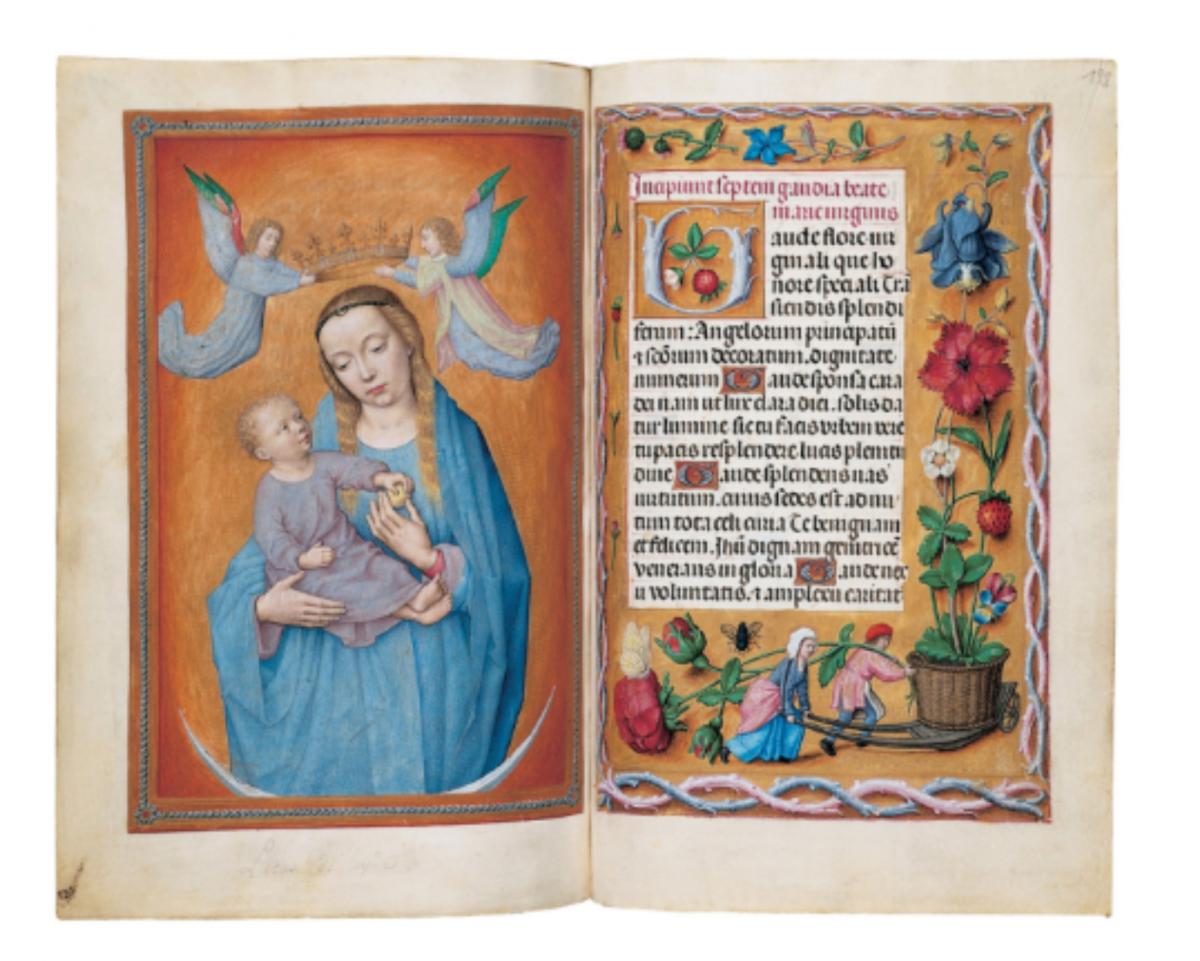 Incipiunt septem gaudia beate
marie virginis
aude flore vir
ginali que ho
nore speciali Tra
siendis splendi
ferum : Angelorum principatū
⁊ scōrum decoratum. dignitate
numerum Gaude sponsa cara
dei nam ut lux clara diei. solis da
tur lumine sic tu facis vrbem vere
tu pacis resplendere lucis plenitu
dine Gaude splendens uas
uirtutum. cuius sedes est ad nu
tum tota celi curia Te benignam
et felicem. Jhū dignam genitricē
venerans in gloria Gaude nex
u voluntatis. ⁊ amplexu caritat